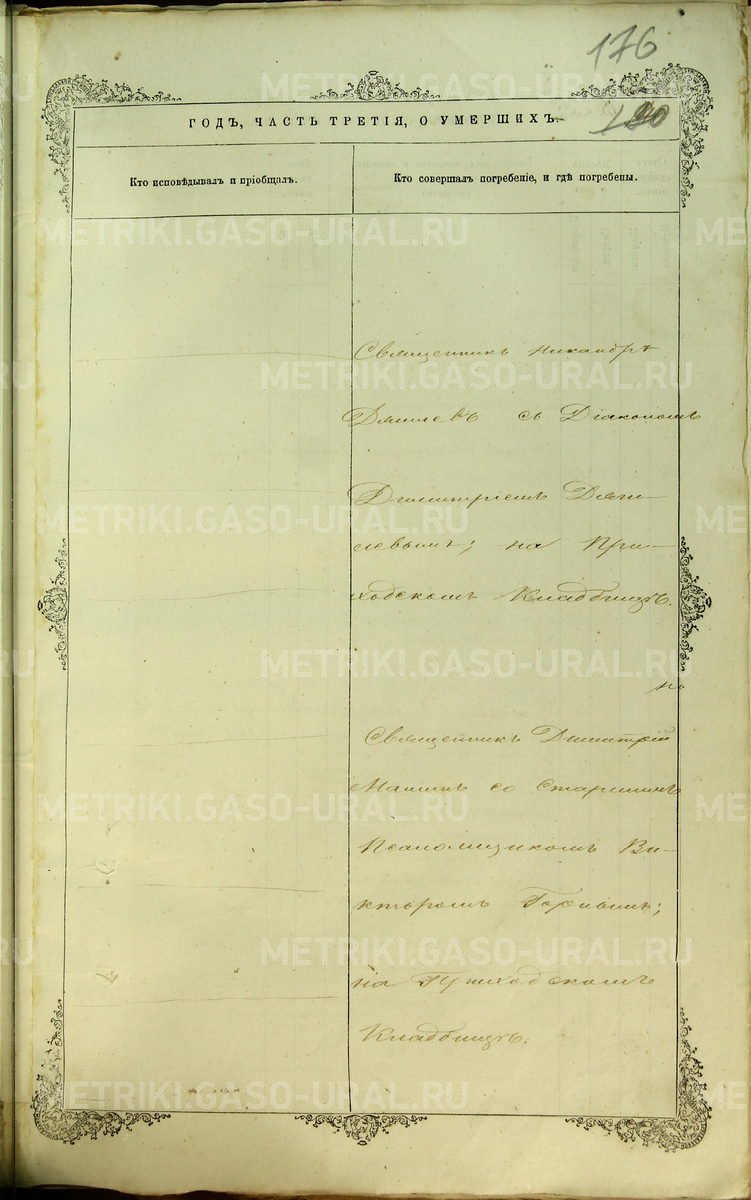 176
ГОДЪ, ЧАСТЬ ТРЕТІЯ, О УМЕРШИХЪ.
Кто исповѣдывалъ и пріобщалъ.
Кто совершалъ погребеніе, и гдѣ погребены.
Священникъ Никандръ
съ Діакономъ
Димитріемъ Дяги-
левымъ; на При-
ходскомъ Кладбищѣ.
Священникъ Димитрій
со Старшимъ
Псаломщикомъ Ви-
кторомъ
на Приходскомъ
Кладбищѣ.
METRIKI.GASO-URAL.RU